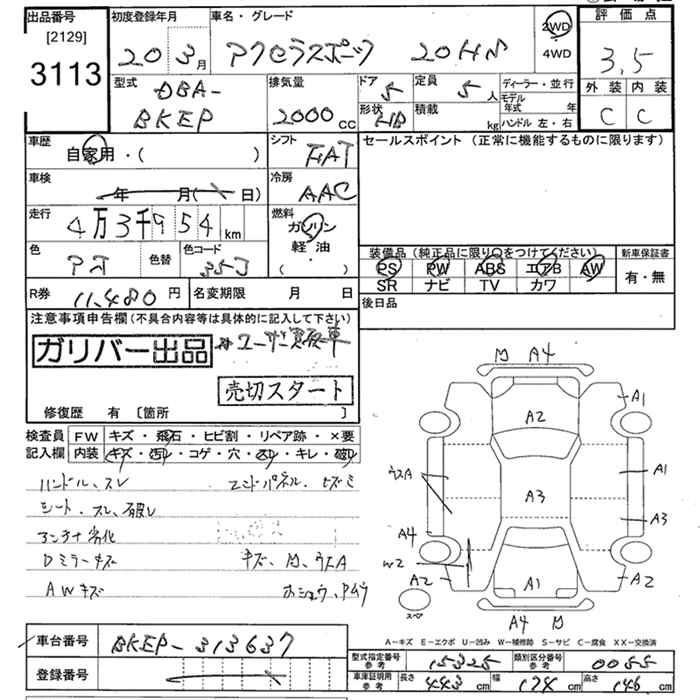 出品番号 初度登録年月 車名・グレード 2WD 評価点
[2129] 20 3月 アクセラスポーツ 20HS 4WD 3.5
3113 型式 排気量 ドア 定員 ディーラー・並行 外装 内装
DBA- 5 5人 モデル年式 年
BKEP 2000cc 形状 HB 積載 kg ハンドル 左・右 C C
車歴 シフト セールスポイント (正常に機能するものに限ります)
自家用・( ) FAT
車検 年 月( 日) 冷房 AAC
走行 4万3千954km 燃料 ガソリン
軽・油
・( )
色 色替 色コード 35J
装備品 (純正品に限り○をつけてください) 新車保証書
PS PW ABS エアB AW 有・無
SR ナビ TV カワ
R券 11,480円 名変期限 月 日 後日品
注意事項申告欄(不具合内容等は具体的に記入して下さい)
ガリバー出品 ユーザー買取車
売切スタート
修復歴 有 [箇所 ]
検査員 FW キズ・飛石・ヒビ割・リペア跡・×要
記入欄 内装 キズ・汚れ・コゲ・穴・スレ・キレ・破れ
ハンドル、スレ エンドパネル、ヒズミ
シート、スレ、破レ
アンテナ劣化
Dミラーキズ キズ、凹、ウスA
AWキズ
凹 A4
A2 A1
ウスA A1
A3 A3
A4
W2
A2 A1 A2
スペア
A4 凹
A-キズ E-エクボ U-凹み W-補修跡 S-サビ C-腐食 XX-交換済
車台番号 BKEP-313637
登録番号
型式指定番号 参考 15325 類別区分番号 参考 0055
車庫証明用 参考 長さ 443cm 幅 174cm 高さ 146cm